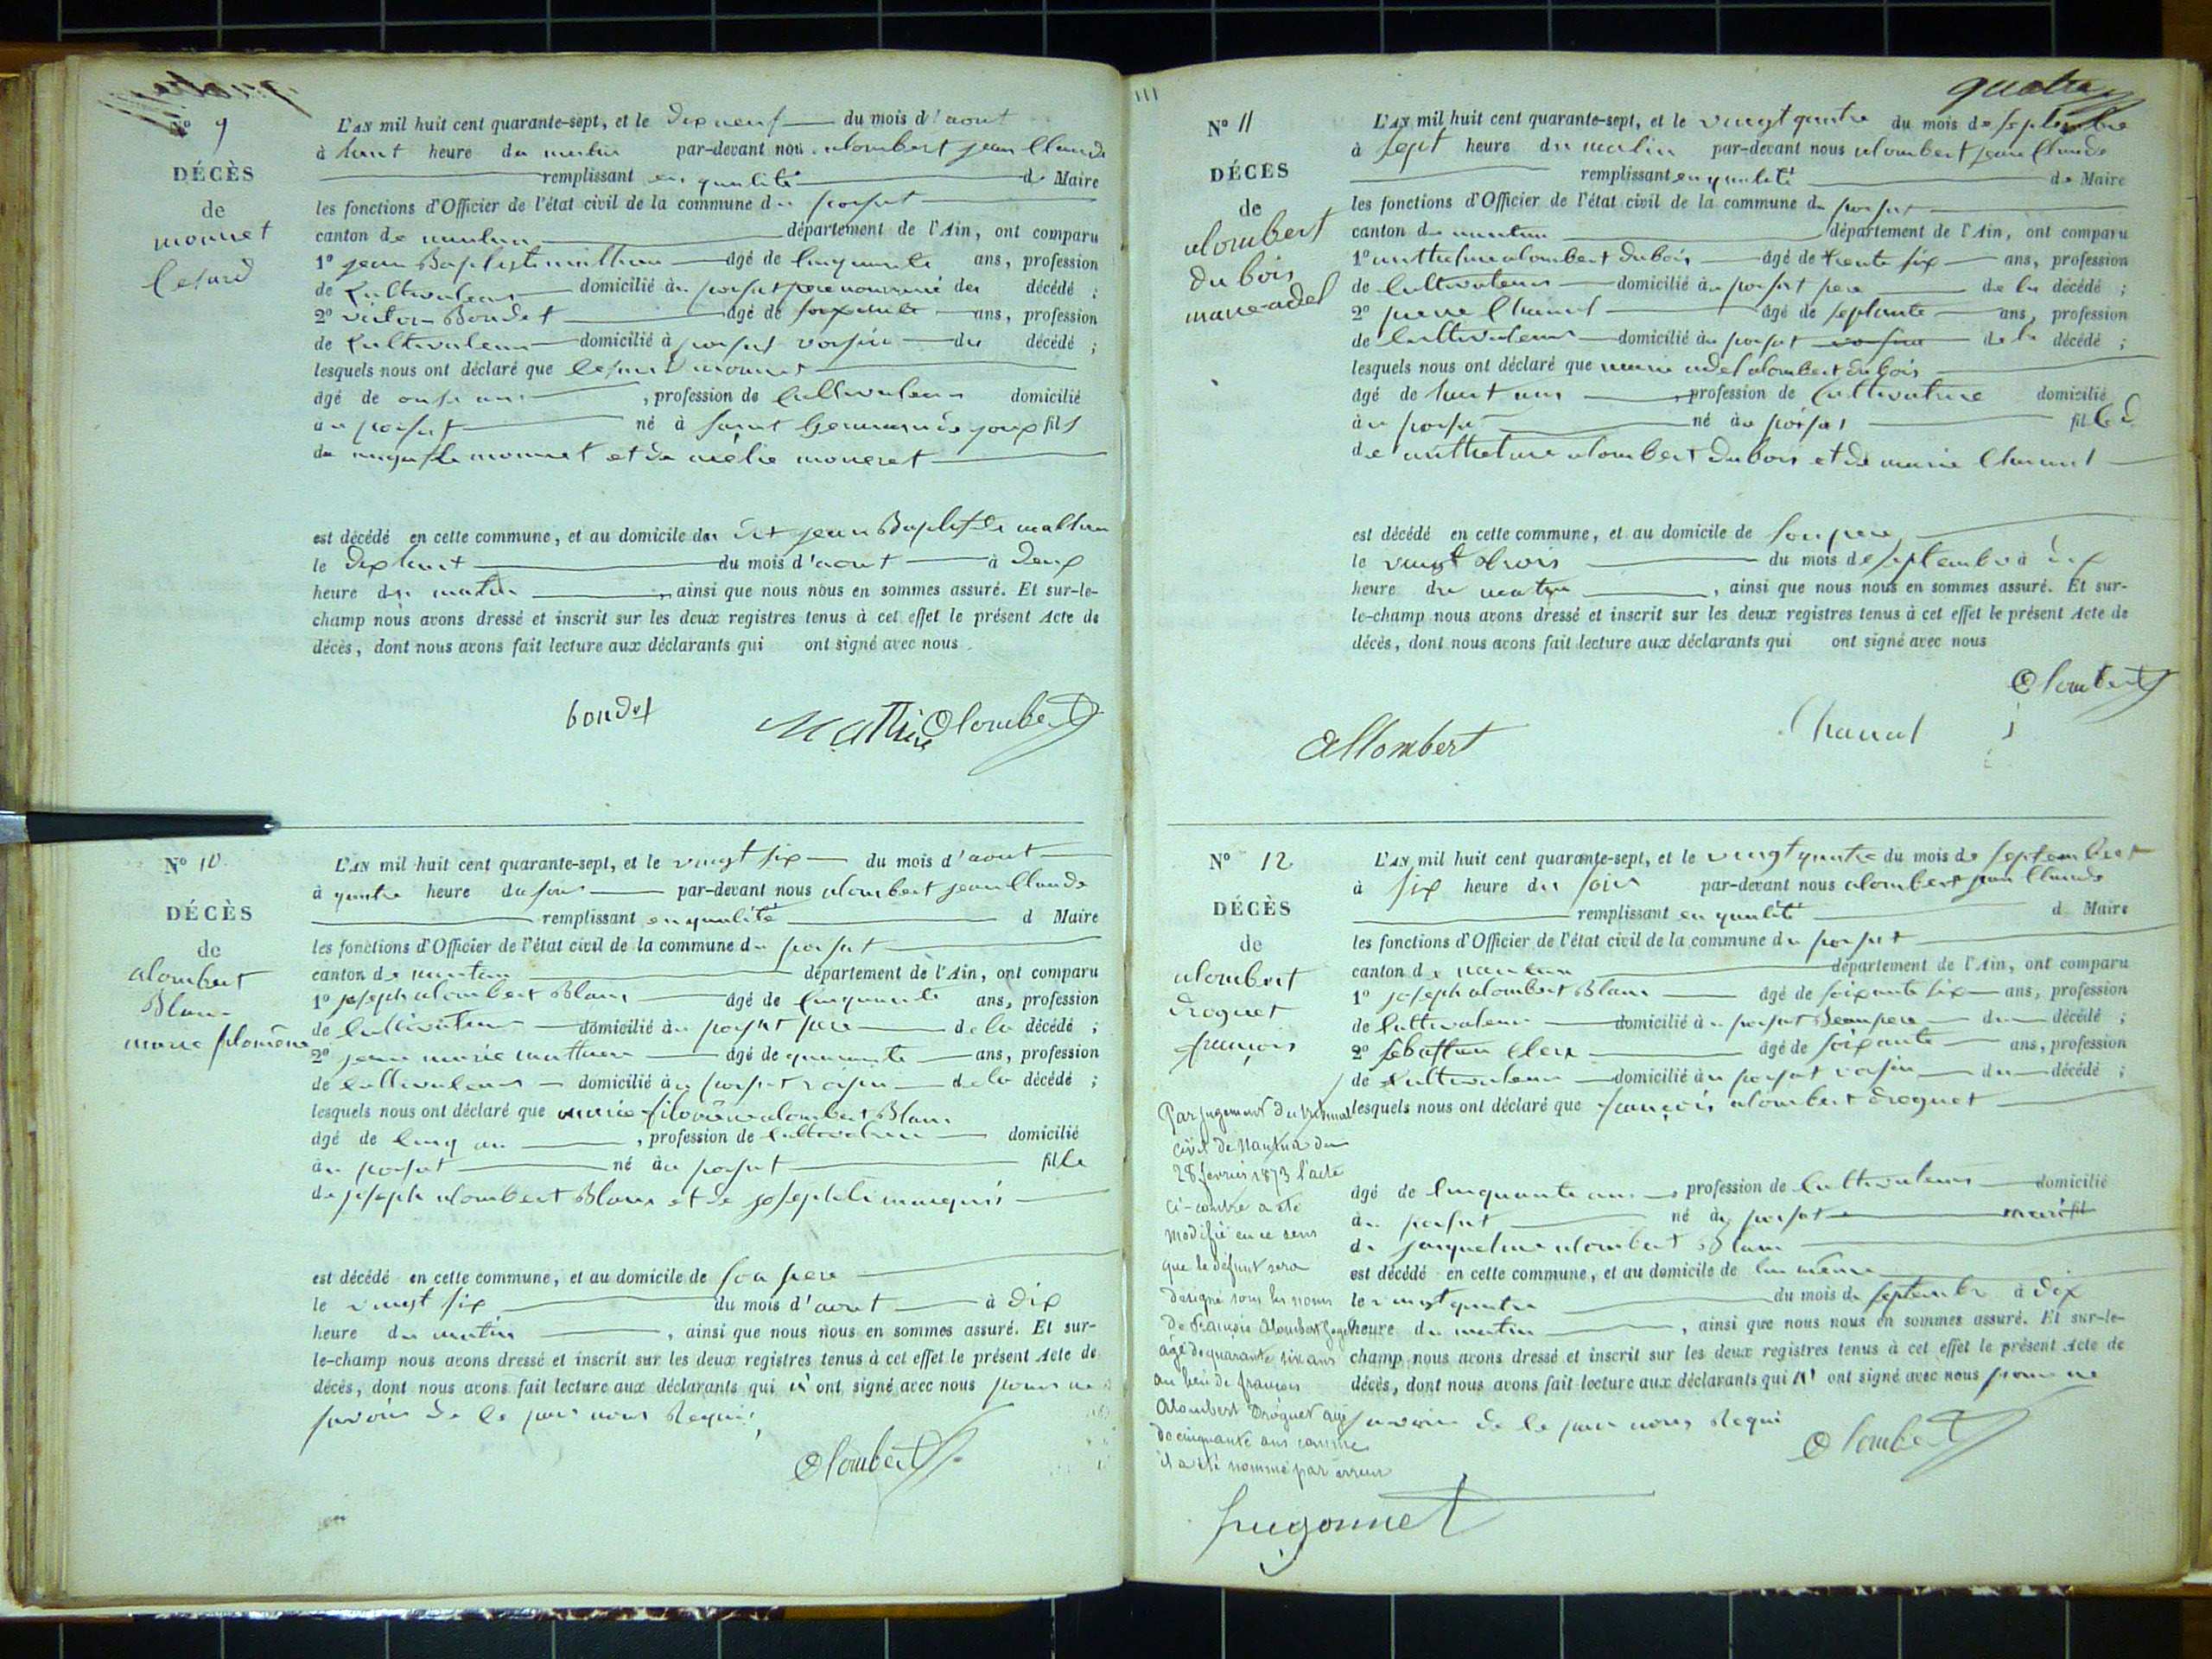 N° 9
DÉCÈS
de
monnet
Cesard
L'AN mil huit cent quarante-sept, et le dix neuf du mois d'aout
à huit heure du matin par-devant nous alombert jean Claude
remplissant en qualité de Maire
les fonctions d'Officier de l'état civil de la commune du poisat
canton de nantua département de l'Ain, ont comparu
1° jean Baptiste mathieu âgé de cinquante ans, profession
de Cultivateur domicilié au poisat pere nourricié du décédé ;
2° victor Boudet âgé de soixante ans, profession
de Cultivateur domicilié à poisat voisin du décédé ;
lesquels nous ont déclaré que Cesard monnet
âgé de onse ans , profession de Cultivateur domicilié
au poisat né à saint Germain de joux fils
de auguste monnet et de mélie moneret
est décédé en cette commune, et au domicile du dit jean Baptiste mathieu
le dix huit du mois d'aout à deux
heure du matin , ainsi que nous nous en sommes assuré. Et sur-le-
champ nous avons dressé et inscrit sur les deux registres tenus à cet effet le présent Acte de
décès, dont nous avons fait lecture aux déclarants qui ont signé avec nous
boudet Mathieu Alombert
N° 10
DÉCÈS
de
alombert
Blanc
marie filomène
L'AN mil huit cent quarante-sept, et le vingt six du mois d'aout
à quatre heure du soir par-devant nous alombert jean Claude
remplissant en qualité d Maire
les fonctions d'Officier de l'état civil de la commune du poisat
canton de nantua département de l'Ain, ont comparu
1° joseph alombert Blanc âgé de cinquante ans, profession
de Cultivateur domicilié au poisat pere de la décédé ;
2° jean marie mathieu âgé de quarante ans, profession
de cultivateur domicilié au poisat voisin de la décédé ;
lesquels nous ont déclaré que marie filomène alombert Blanc
âgé de cinq an , profession de Cultivatrice domicilié
au poisat né au poisat fille
de joseph alombert Blanc et de josephte marquis
est décédé en cette commune, et au domicile de son pere
le vingt six du mois d'aout à dix
heure du matin , ainsi que nous nous en sommes assuré. Et sur-
le-champ nous avons dressé et inscrit sur les deux registres tenus à cet effet le présent Acte de
décès, dont nous avons fait lecture aux déclarants qui n'ont signé avec nous pour ne
savoir de le par nous Requi
Alombert
quatre
N° 11
DÉCÈS
de
alombert
du bois
marie adel
L'AN mil huit cent quarante-sept, et le vingt quatre du mois de septembre
à sept heure du matin par-devant nous alombert jean Claude
remplissant en qualité de Maire
les fonctions d'Officier de l'état civil de la commune du poisat
canton de nantua département de l'Ain, ont comparu
1° anthelme alombert dubois âgé de trente six ans, profession
de Cultivateur domicilié au poisat pere de la décédé ;
2° pierre Chanal âgé de septante ans, profession
de Cultivateur domicilié au poisat voisin de la décédé ;
lesquels nous ont déclaré que marie adel alombert dubois
âgé de huit ans , profession de Cultivatrice domicilié
au poisat né au poisat fille
de anthelme alombert dubois et de marie Chanal
est décédé en cette commune, et au domicile de son pere
le vingt trois du mois de septembre à dix
heure du matin , ainsi que nous nous en sommes assuré. Et sur-
le-champ nous avons dressé et inscrit sur les deux registres tenus à cet effet le présent Acte de
décès, dont nous avons fait lecture aux déclarants qui ont signé avec nous
Alombert
Allombert Chanal
N° 12
DÉCÈS
de
alombert
droguet
françois
L'AN mil huit cent quarante-sept, et le vingt quatre du mois de septembre
à six heure du soir par-devant nous alombert jean Claude
remplissant en qualité d Maire
les fonctions d'Officier de l'état civil de la commune du poisat
canton de nantua département de l'Ain, ont comparu
1° joseph alombert Blanc âgé de soixante six ans, profession
de Cultivateur domicilié au poisat Beau pere du décédé ;
2° sébastien Clerc âgé de soixante ans, profession
de Cultivateur domicilié au poisat voisin du décédé ;
lesquels nous ont déclaré que françois alombert droguet
âgé de cinquante ans profession de Cultivateur domicilié
au poisat né au poisat mari fil
de jacqueline alombert Blanc
est décédé en cette commune, et au domicile de lui même
le vingt quatre du mois de septembre à dix
heure du matin , ainsi que nous nous en sommes assuré. Et sur-le-
champ nous avons dressé et inscrit sur les deux registres tenus à cet effet le présent Acte de
décès, dont nous avons fait lecture aux déclarants qui n'ont signé avec nous pour ne
savoir de le par nous Requi
Alombert
Par jugement du tribunal
civil de Nantua du
28 février 1873 l'acte
ci-contre a été
modifié en ce sens
que le défunt sera
designé sous les noms
de François Alombert
âgé de quarante six ans
au lieu de françois
Alombert Droguet agé
de cinquante ans comme
il a été nommé par erreur
Hugonnet